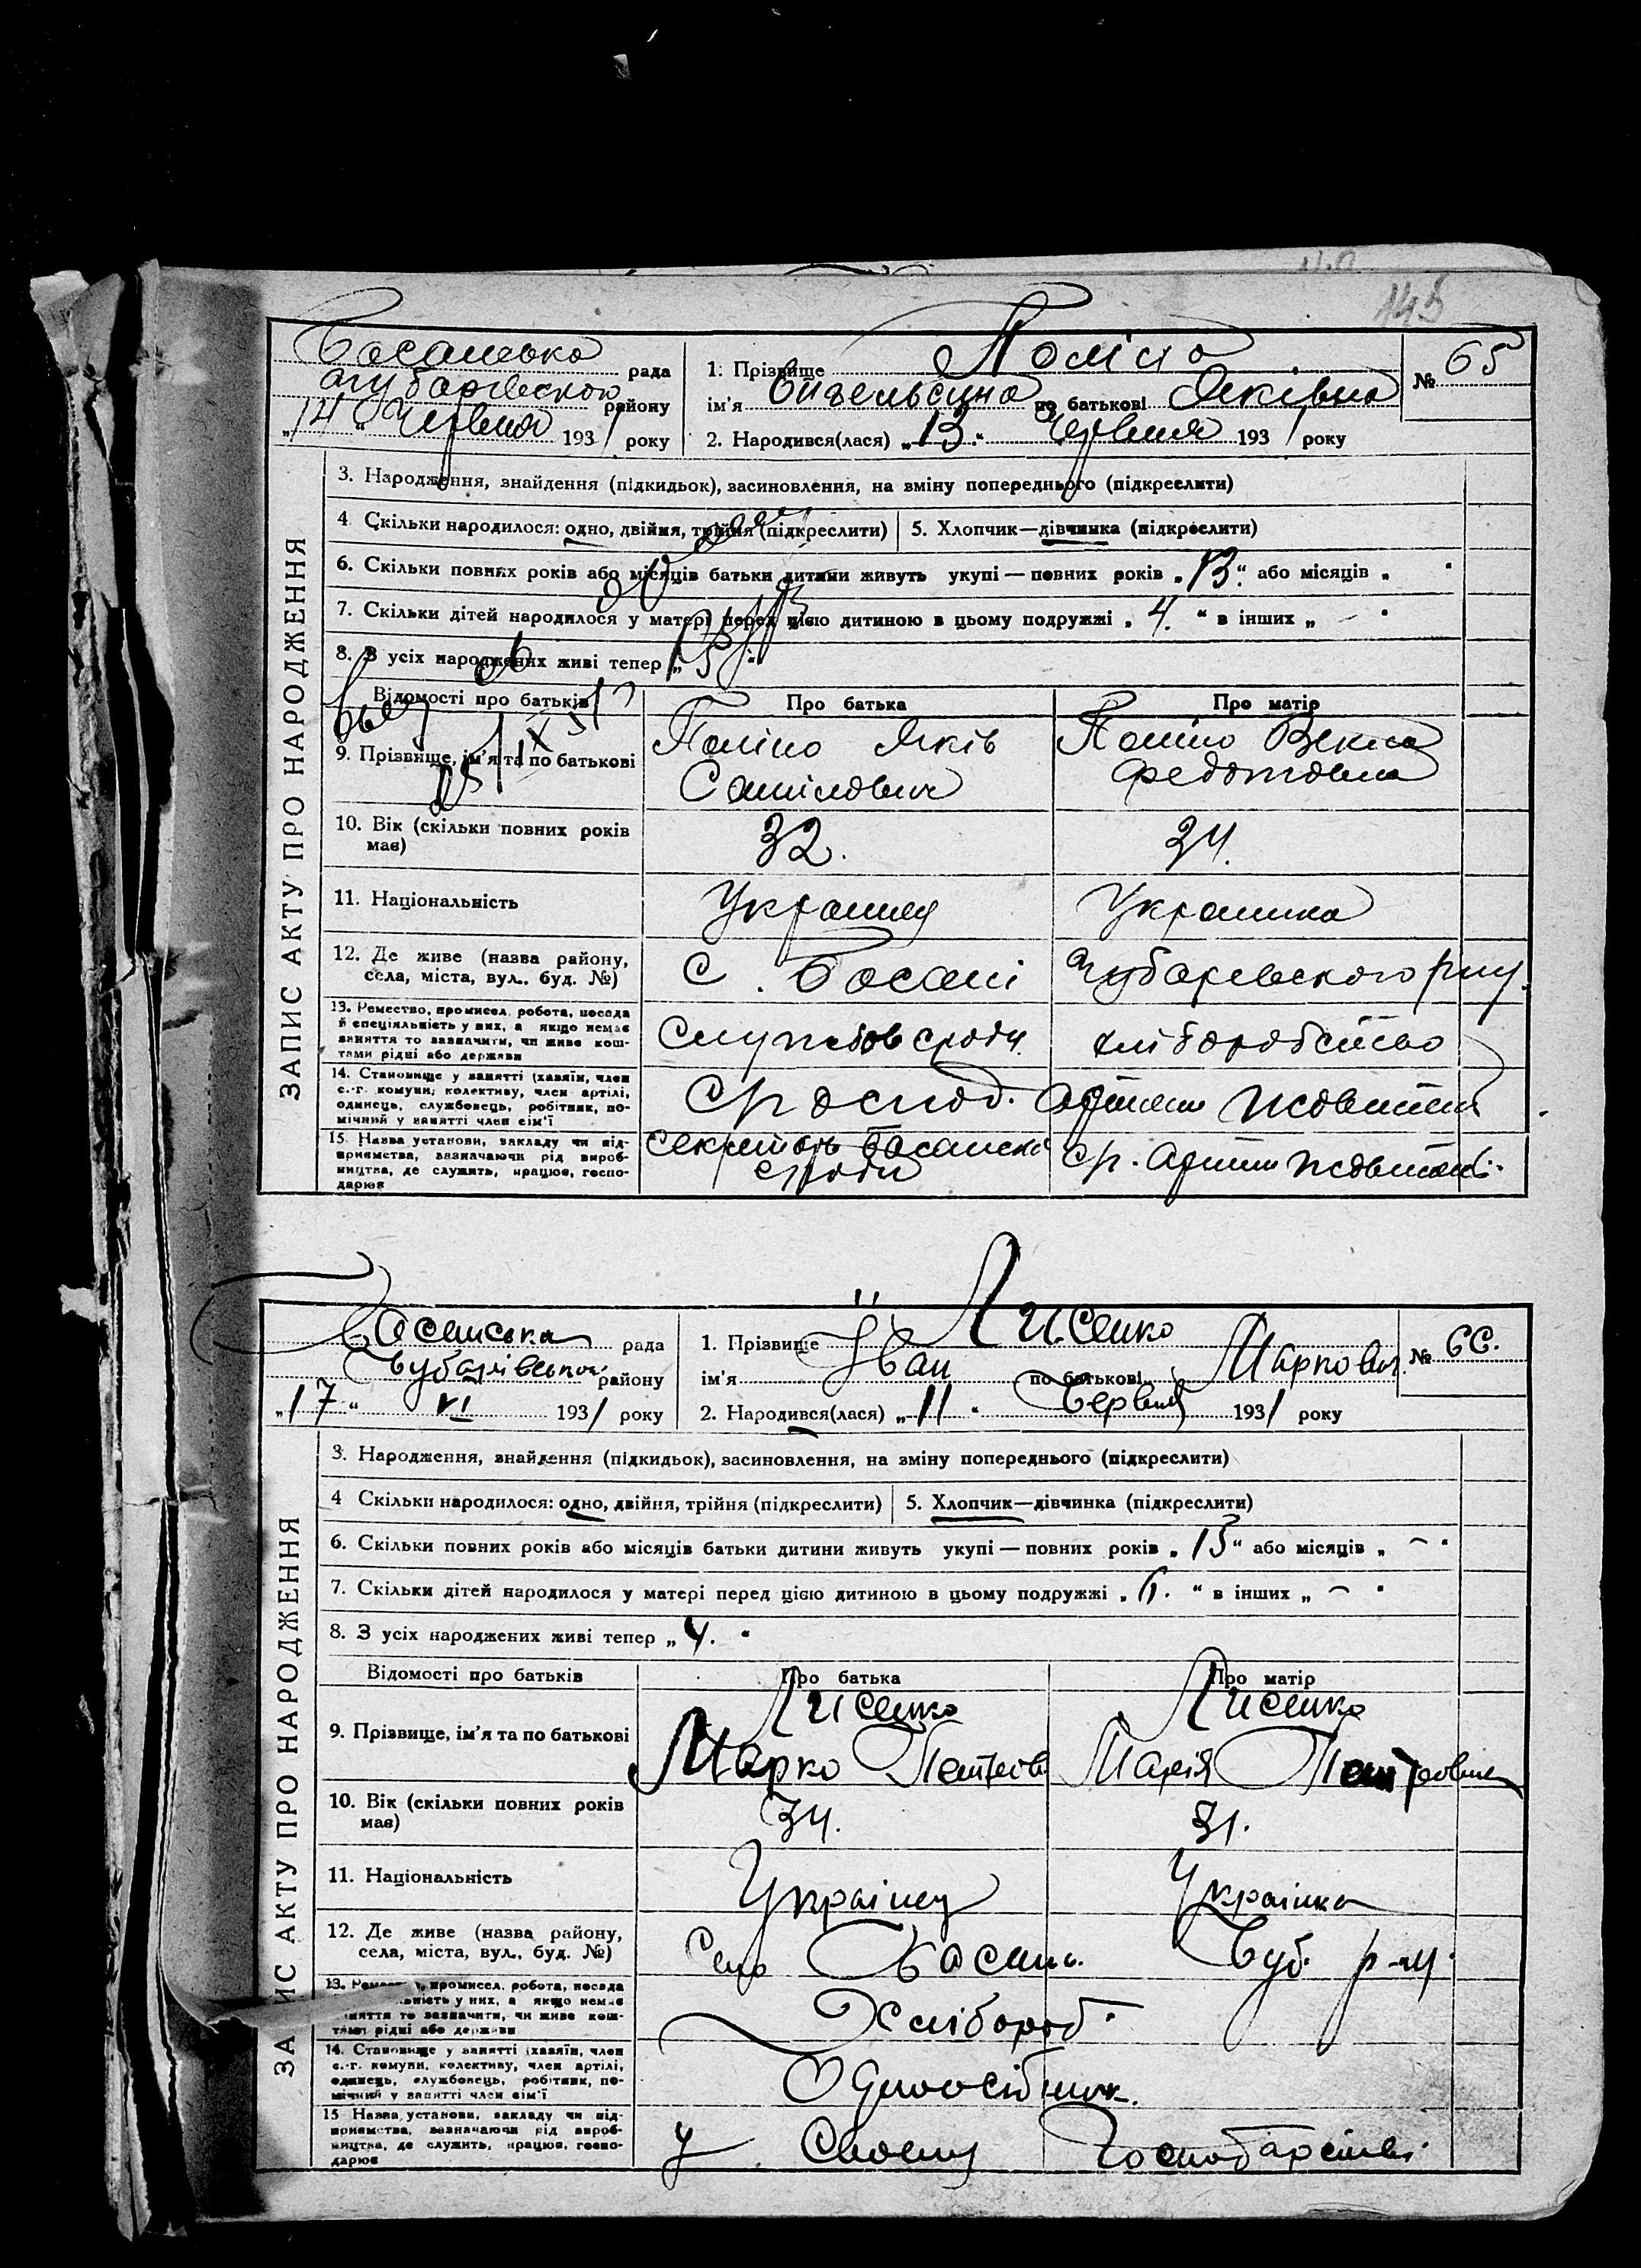 145
Басанська рада
Чубаревского району
„14“ Червня 1931 року
1. Прізвище
№ 65
ім'я по батькові Яківна
2. Народився(лася) „13“ Червня 1931 року
ЗАПИС АКТУ ПРО НАРОДЖЕННЯ
3. Народження, знайдення (підкидьок), засиновлення, на зміну попереднього (підкреслити)
4 Скільки народилося: одно, двійня, трійня (підкреслити) 5. Хлопчик—дівчинка (підкреслити)
6. Скільки повних років або місяців батьки дитини живуть укупі — повних років „13“ або місяців „
7. Скільки дітей народилося у матері перед цією дитиною в цьому подружжі „4.“ в інших „
8. З усіх народжених живі тепер „5“
Відомості про батьків Про батька Про матір
9. Прізвище, ім'я та по батькові
Яків
Федотовна
10. Вік (скільки повних років має)
32. 34.
11. Національність
Украинец Украинка
12. Де живе (назва району, села, міста, вул., буд. №)
с. Басані Чубаревского р-ну.
13. Ремество, промисел, робота, посада й спеціяльність у них, а якщо немає заняття то зазначити, чи живе коштами рідні або держави
Службов с/ради хліборобство
14. Становище у занятті (хазяїн, член с.-г. комуни, колективу, член артілі, одинець, службовець, робітник, помічний у занятті член сім'ї
15. Назва установи, закладу чи підприємства, зазначаючи рід виробництва, де служить, працює, господарює
Секретарь Басанської
с/ради
Басанська рада
Чубарівськой району
„17“ VI 1931 року
1. Прізвище Лисенко
№ 66.
ім'я Йван по батькові Маркович
2. Народився(лася) „11“ Червня 1931 року
ЗАПИС АКТУ ПРО НАРОДЖЕННЯ
3. Народження, знайдення (підкидьок), засиновлення, на зміну попереднього (підкреслити)
4 Скільки народилося: одно, двійня, трійня (підкреслити) 5. Хлопчик—дівчинка (підкреслити)
6. Скільки повних років або місяців батьки дитини живуть укупі — повних років „13“ або місяців „ –
7. Скільки дітей народилося у матері перед цією дитиною в цьому подружжі „6.“ в інших „ –
8. З усіх народжених живі тепер „4.“
Відомості про батьків Про батька Про матір
9. Прізвище, ім'я та по батькові
Лисенко Лисенко
Марко Петров Марія Петровна
10. Вік (скільки повних років має)
34. 31.
11. Національність
Украінец Украінка
12. Де живе (назва району, села, міста, вул., буд. №)
Село Басань. Чуб. р-ну.
13. промисел, робота, посада у них, а якщо немає заняття то зазначити, чи живе коштами рідні або держави
Хлібороб.
14. Становище у занятті (хазяїн, член с.-г. комуни, колективу, член артілі, одинець, службовець, робітник, помічний у занятті член сім'ї
Одноосібник.
15 Назва установи, закладу чи підприємства, зазначаючи рід виробництва, де служить, працює, господарює
У Своему Господарстві.